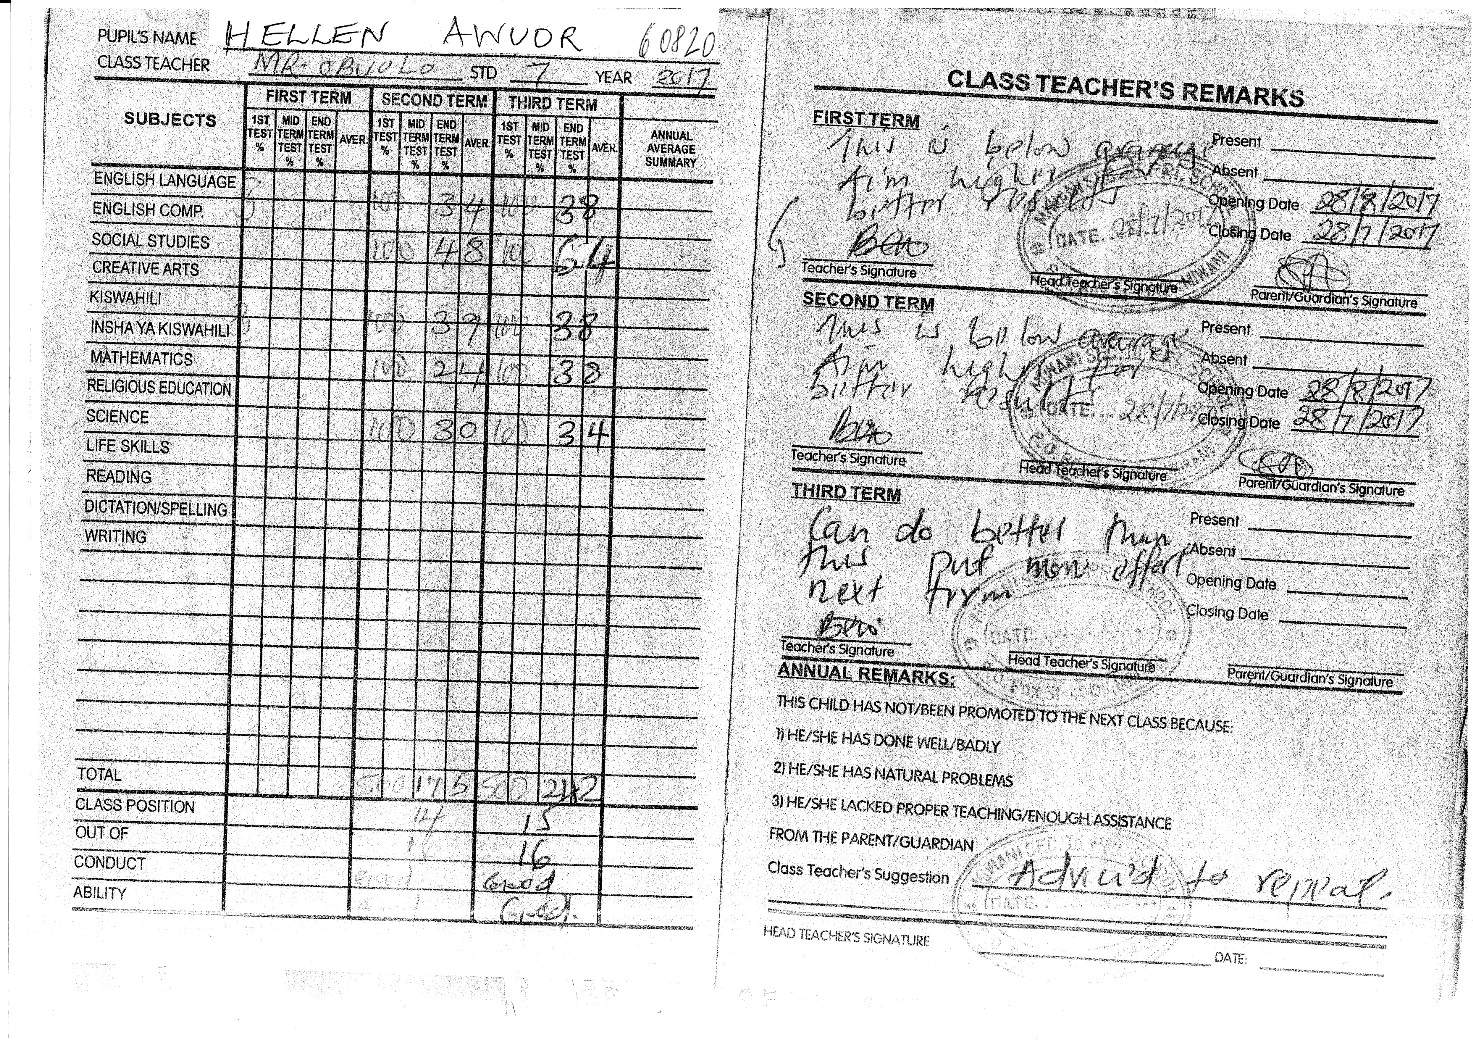 PUPIL'S NAME HELLEN AWUOR 60820
CLASS TEACHER MR. OBUOLO STD 7 YEAR 2017
SUBJECTS FIRST TERM SECOND TERM THIRD TERM ANNUAL AVERAGE SUMMARY
1ST TEST % MID TERM TEST % END TERM TEST % AVER. 1ST TEST % MID TERM TEST % END TERM TEST % AVER. 1ST TEST % MID TERM TEST % END TERM TEST % AVER.
ENGLISH LANGUAGE
ENGLISH COMP. 100 34 100 38
SOCIAL STUDIES 100 48 100 64
CREATIVE ARTS
KISWAHILI
INSHA YA KISWAHILI 100 39 100 38
MATHEMATICS 100 24 100 38
RELIGIOUS EDUCATION
SCIENCE 100 30 100 34
LIFE SKILLS
READING
DICTATION/SPELLING
WRITING
TOTAL 500 175 500 212
CLASS POSITION 14 15
OUT OF 16
CONDUCT Good Good
ABILITY Good.
CLASS TEACHER'S REMARKS
FIRST TERM
This is below average
Aim higher for
better results
Present
Absent
Opening Date 28/8/2017
Closing Date 28/7/2017
DATE. 28/7/2017
Teacher's Signature
Head Teacher's Signature
Parent/Guardian's Signature
SECOND TERM
This is below average
Aim higher for
better result
Present
Absent
Opening Date 28/8/2017
Closing Date 28/7/2017
DATE... 28/7/2017
Teacher's Signature
Head Teacher's Signature
Parent/Guardian's Signature
THIRD TERM
Can do better than
this put more effort
next term
Present
Absent
Opening Date
Closing Date
DATE
Teacher's Signature
Head Teacher's Signature
Parent/Guardian's Signature
ANNUAL REMARKS:
THIS CHILD HAS NOT/BEEN PROMOTED TO THE NEXT CLASS BECAUSE:
1) HE/SHE HAS DONE WELL/BADLY
2) HE/SHE HAS NATURAL PROBLEMS
3) HE/SHE LACKED PROPER TEACHING/ENOUGH ASSISTANCE
FROM THE PARENT/GUARDIAN
Class Teacher's Suggestion Advised to repeat.
HEAD TEACHER'S SIGNATURE DATE: